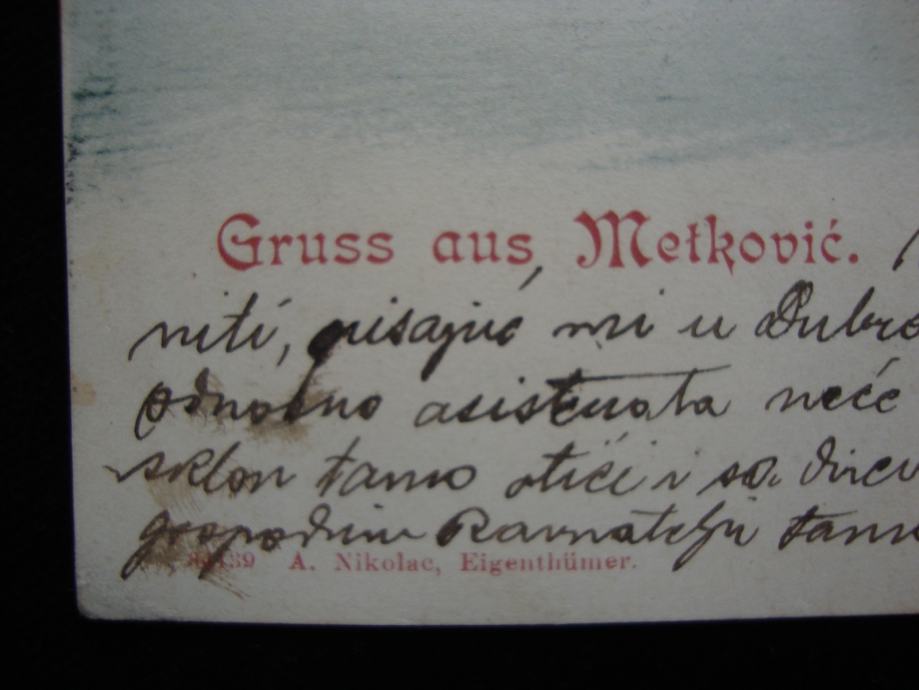 Gruss aus Metković.
niti, pisajuć mi u Dubro
odnosno asistenata neće
sklon tamo otići i sa
gospodinu Ravnatelju tamo
A. Nikolac, Eigenthümer.